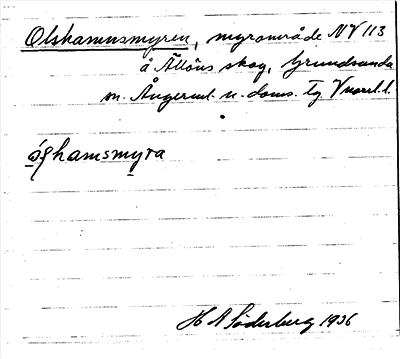 Olshamnsmyren, myrområde NV 113
å Ällöns skog, Grundsunda
sn. Ångerml. n. doms. tg Vnorrl. l.
óʃhamsmyra
H A Söderberg 1936